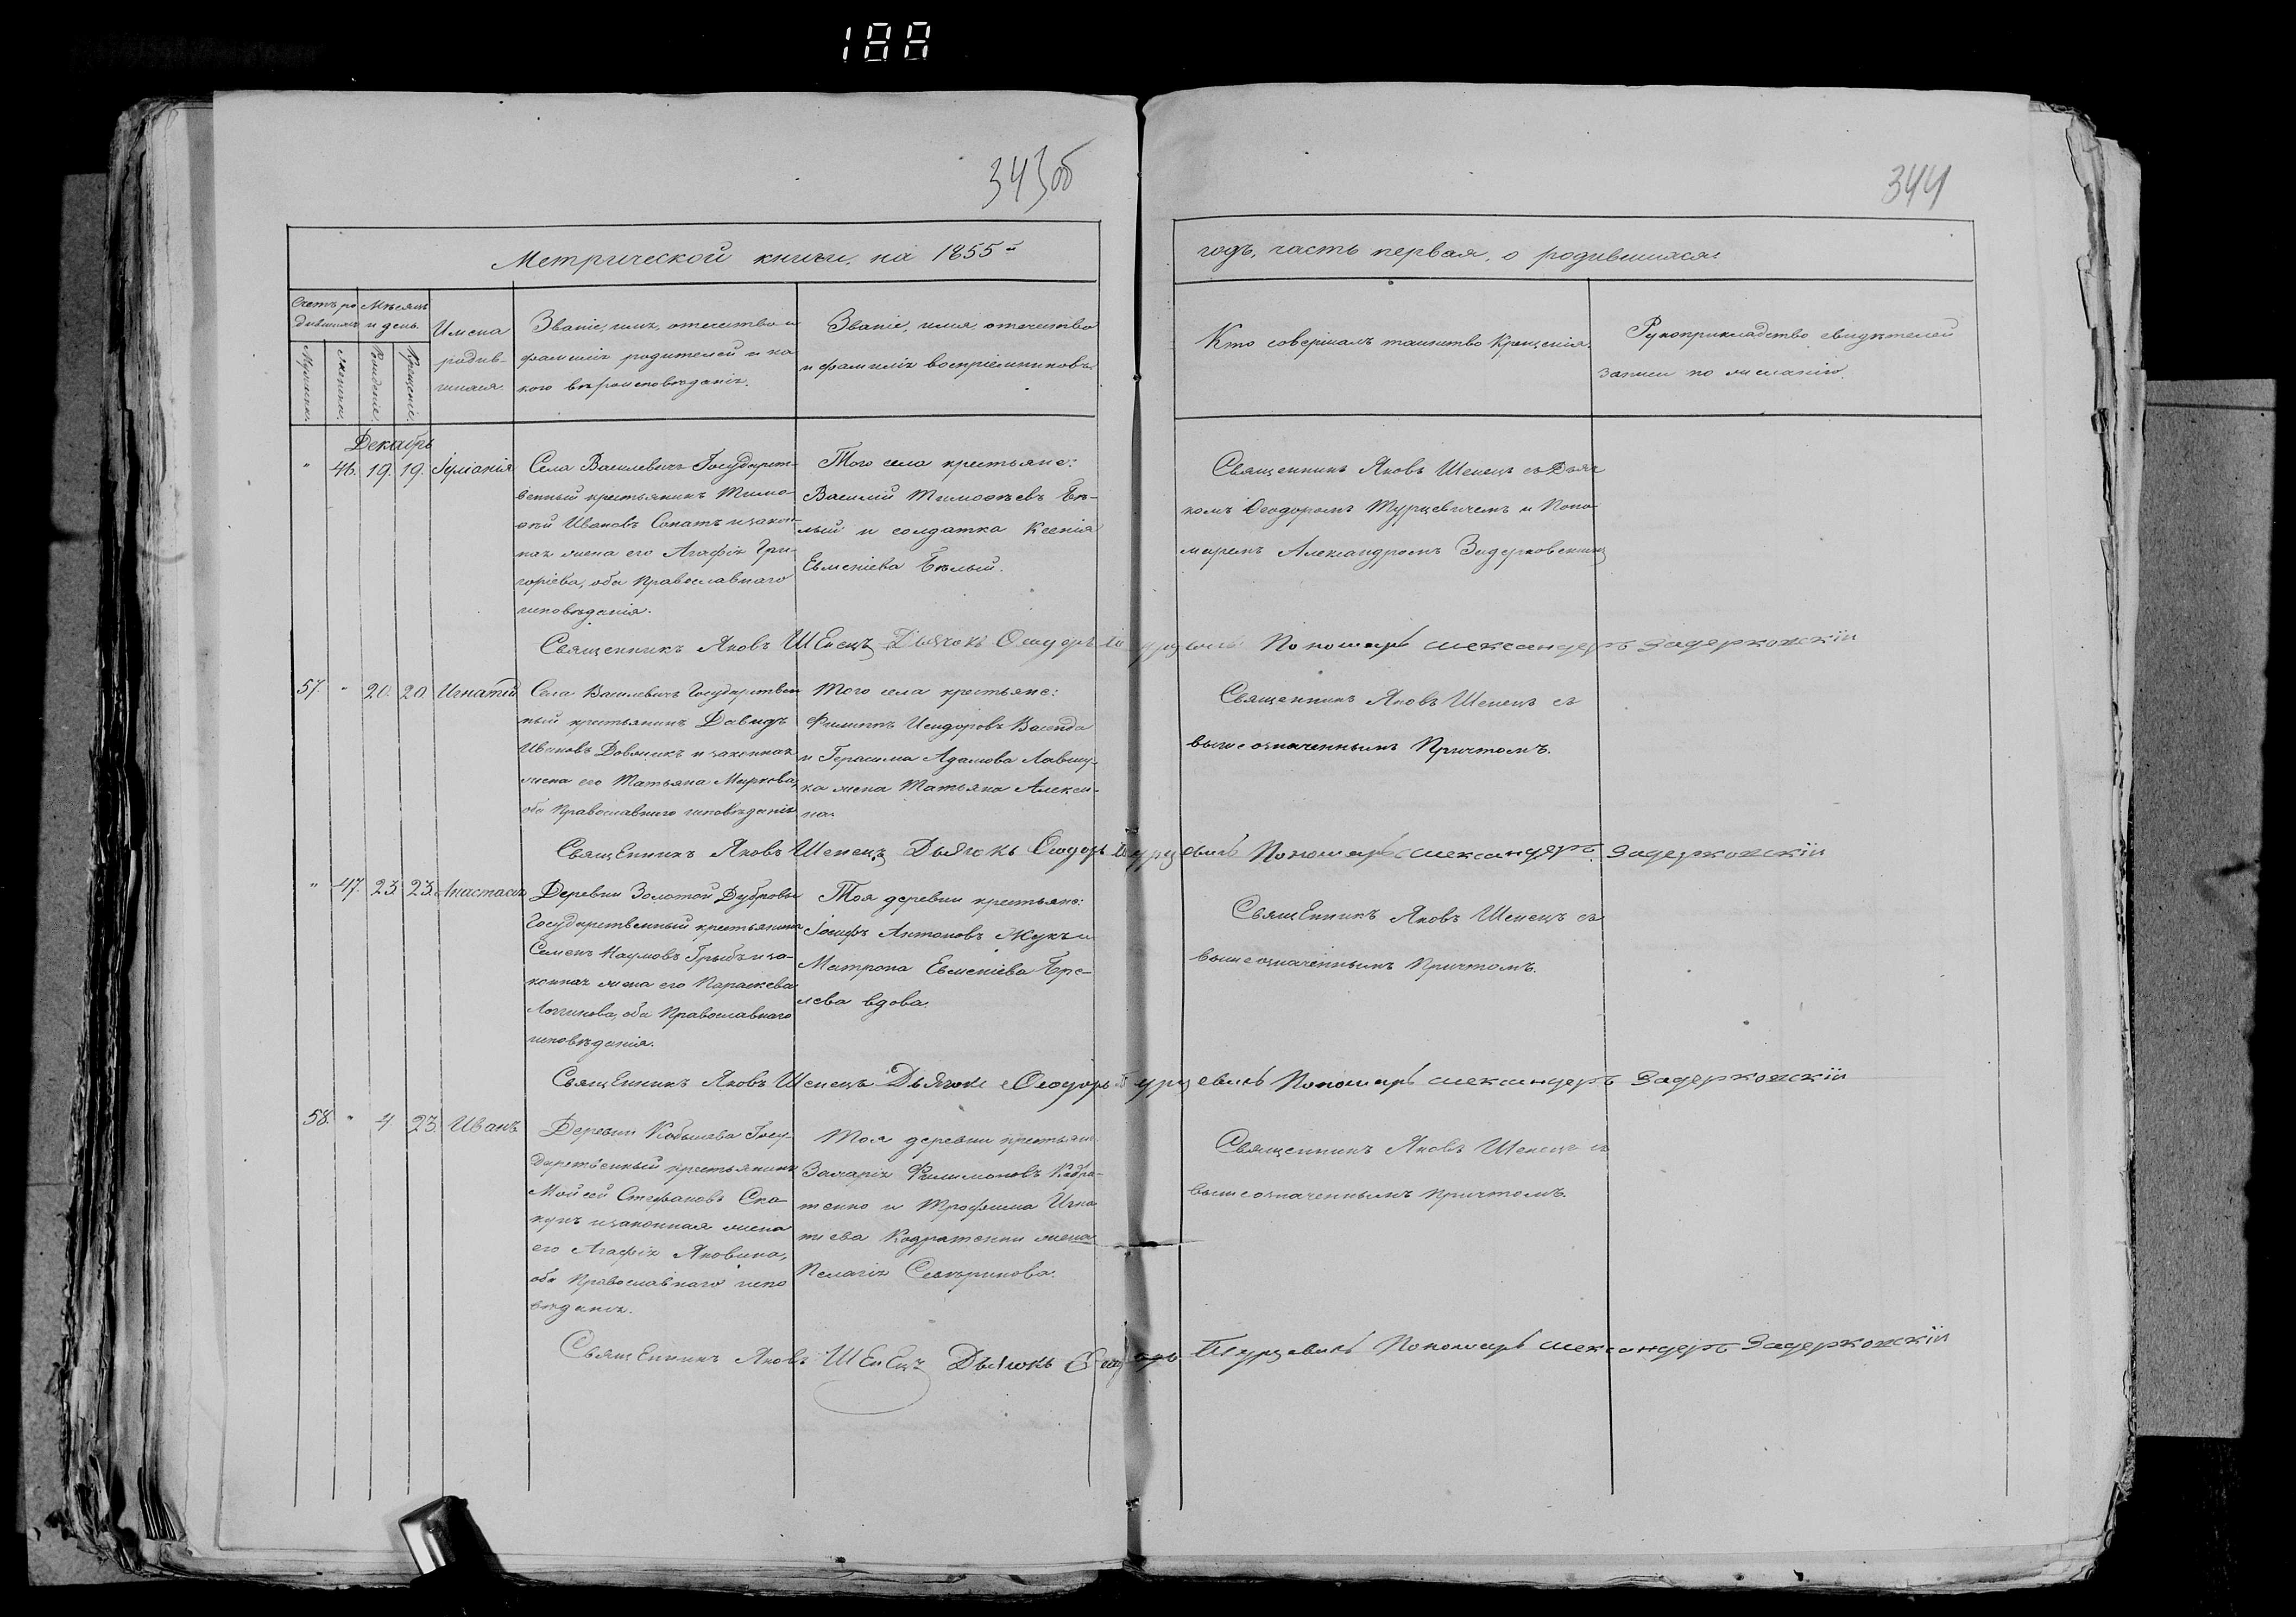 188
343об
344
Метрической книги, на 1855й
годъ, часть первая, о родившихся:
Счетъ ро
дившихся
Мѣсяцъ
и день
Мужеска.
Женска.
Рожденіе.
Крещеніе.
Имена
родив-
шихся.
Званіе, имя, отечество и
фамилія родителей и ка
кого вѣроисповѣданія.
Званіе, имя, отечество
и фамилія воспріемниковъ.
Кто совершалъ таинство Крещенія.
Рукоприкладство свидѣтелей
записи по желанію.
Декабрь
" 46. 19. 19. Іуліанія
Села Василевичъ Государст-
венный крестьянинъ Тимо-
ѳей Ивановъ Сопатъ и закон-
ная жена его Агафія Гри-
горіева, оба Православнаго
исповѣданія.
Того села крестьяне:
Василій Тимоѳѣевъ Бѣ-
лый и солдатка Ксенія
Евменіева Бѣлый.
Священникъ Яковъ Шепецъ съ Дьяч
комъ Ѳеодоромъ Турцевичемъ и Поно
маремъ Александромъ Задерковскимъ
Священникъ Яковъ Шепецъ Дьячокъ Ѳеодоръ Турцевичъ Пономарь Александеръ Задерковскій
57. " 20. 20 Игнатій
Села Василевичъ Государствен
ный крестьянинъ Давидъ
Ивановъ Довжикъ и законная
жена его Татьяна Маркова,
оба Православнаго исповѣданія
Того села крестьяне:
Филиппъ Исидоровъ
и Герасима Адамова
ка жена Татьяна Алексі-
на.
Священникъ Яковъ Шепецъ съ
вышеозначеннымъ Причтомъ.
Священникъ Яковъ Шепецъ Дьячокъ Ѳеодоръ Турцевичъ Пономарь Александеръ Задерковскій
" 47. 23. 23. Анастасія
Деревни Золотой Дубровы
Государственный крестьянинъ
Семенъ Наумовъ Грыбъ и за-
конная жена его Параскева
Логгинова, оба Православнаго
исповѣданія.
Тоя деревни крестьяне:
Іосифъ Антоновъ Жукъ и
Матрона Евменіева Бре-
лева вдова.
Священникъ Яковъ Шепецъ съ
вышеозначеннымъ Причтомъ.
Священникъ Яковъ Шепецъ Дьячокъ Ѳеодоръ Турцевичъ Пономарь Александеръ Задерковскій
58. " 4. 23. Иванъ
Деревни Кобылева Госу-
дарственный крестьянинъ
Мойсей Стефановъ Ска-
кунъ и законная жена
его Агафія Яковина,
оба Православнаго испо
вѣданія.
Тоя деревни крестьяне
Захарія Филимоновъ Кадра-
тенко и Трофима Игна
тіева Кадратенки жена
Пелагія Северинова.
Священникъ Яковъ Шепецъ съ
вышеозначеннымъ Причтомъ.
Священникъ Яковъ Шепецъ Дьячокъ Ѳеодоръ Турцевичъ Пономарь Александеръ Задерковскій